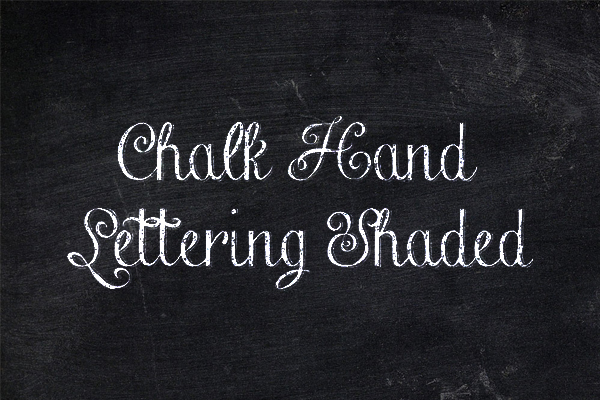 Chalk Hand
Lettering Shaded